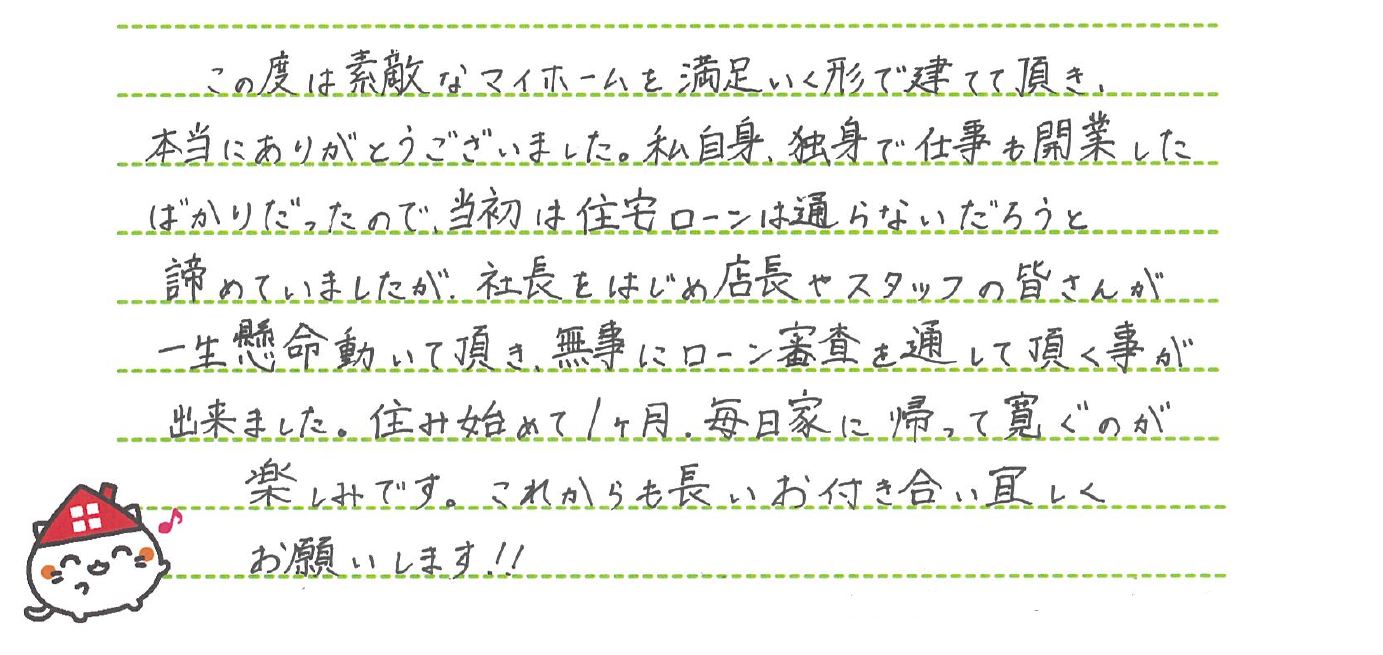 この度は素敵なマイホームを満足いく形で建てて頂き、
本当にありがとうございました。私自身、独身で仕事も開業した
ばかりだったので、当初は住宅ローンは通らないだろうと
諦めていましたが、社長をはじめ店長やスタッフの皆さんが
一生懸命動いて頂き、無事にローン審査を通して頂く事が
出来ました。住み始めて1ヶ月、毎日家に帰って寛ぐのが
楽しみです。これからも長いお付き合い宜しく
お願いします!!